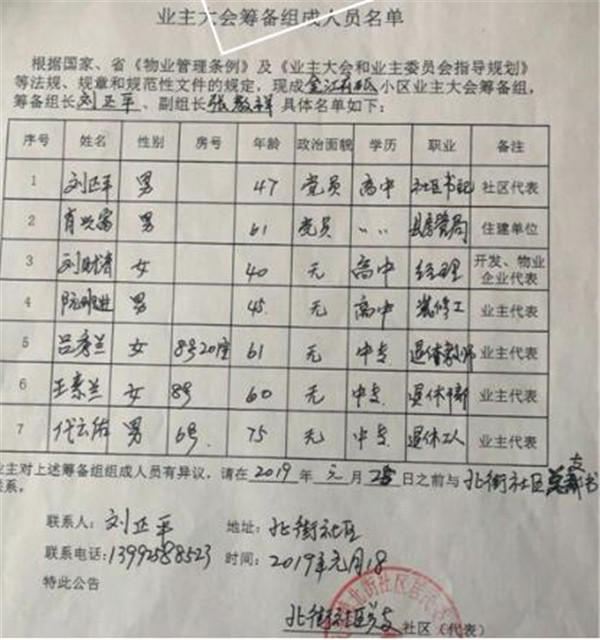 业主大会筹备组成人员名单
根据国家、省《物业管理条例》及《业主大会和业主委员会指导规划》
等法规、规章和规范性文件的规定，现成 小区业主大会筹备组，
筹备组长刘正平、副组长张敬祥 具体名单如下：
序号 姓名 性别 房号 年龄 政治面貌 学历 职业 备注
1 刘正平 男 47 党员 高中 社区书记 社区代表
2 肖兴富 男 61 党员 〃 县房管局 住建单位
3 女 40 无 高中 经理 开发、物业
企业代表
4 男 45 无 高中 装修工 业主代表
5 吕秀兰 女 8号20座 61 无 中专 退休教师 业主代表
6 王素兰 女 8号 60 无 中专 退休干部 业主代表
7 男 6号 75 无 中专 退休工人 业主代表
业主对上述筹备组组成人员有异议，请在2019年元月25日之前与北街社区总支书
联系。
联系人：刘正平 地址：北街社区
联系电话：13992588523 时间：2019年元月18
特此公告
北街社区 社区（代表）